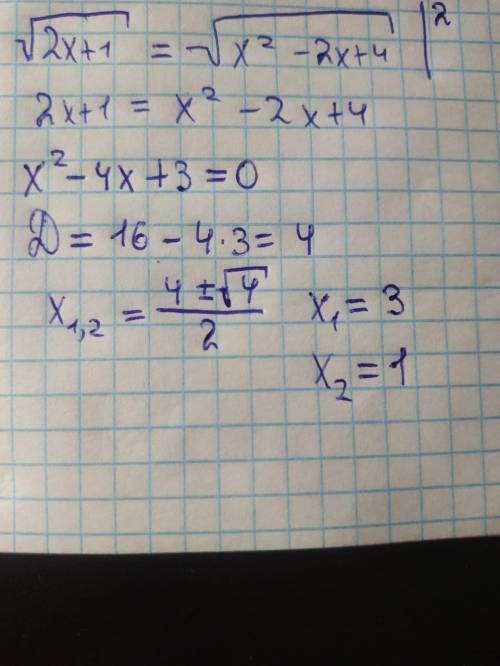 √(2x+1) = √(x² - 2x+4) |²
2x+1 = x² - 2x+4
x² - 4x + 3 = 0
D = 16 - 4·3 = 4
x₁,₂ = (4 ± √4)/2 x₁ = 3
x₂ = 1